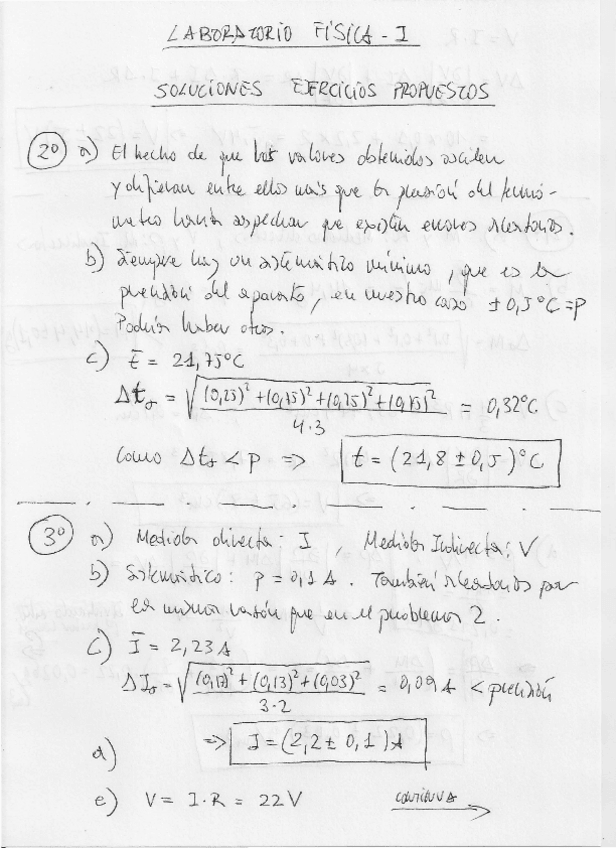 LABORATORIO FÍSICA - I
SOLUCIONES EJERCICIOS PROPUESTOS
2º a) El hecho de que los valores obtenidos oscilen
y difieran entre ellos más que la precisión del termó-
metro haría sospechar que existen errores aleatorios.
b) Siempre hay un sistemático mínimo, que es la
precisión del aparato, en nuestro caso ± 0,5ºC = P
Podrían haber otros.
c) t̄ = 21,75ºC
Δtσ = √((0,25)² + (0,75)² + (0,25)² + (0,75)² / 4·3) = 0,32ºC
Como Δtσ < P => t = (21,8 ± 0,5)ºC
3º a) Medida directa: I Medida Indirecta: V
b) Sistemático: P = 0,1 A. También aleatorios por
la misma razón que en el problema 2.
c) Ī = 2,23 A
ΔIσ = √((0,17)² + (0,13)² + (0,03)² / 3·2) = 0,09 A < precisión
=> I = (2,2 ± 0,1) A
d)
e) V = I·R = 22 V CONTINUA